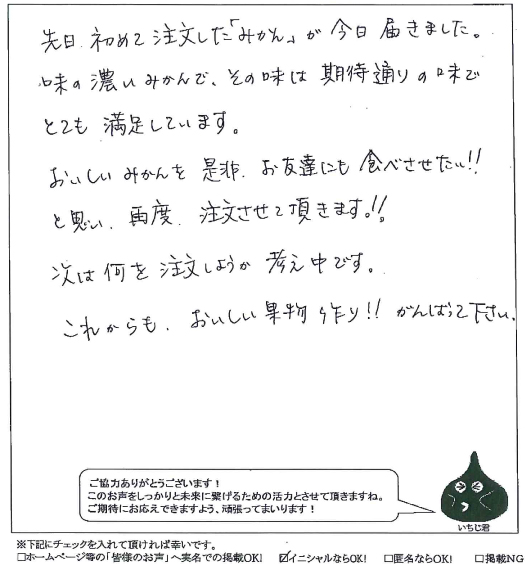 先日、初めて注文した「みかん」が今日届きました。
味の濃いみかんで、その味は期待通りの味で
とても満足しています。
おいしいみかんを是非、お友達にも食べさせたい!!
と思い、再度、注文させて頂きます!!
次は何を注文しようか考え中です。
これからも、おいしい果物作り!!がんばって下さい。
ご協力ありがとうございます!
このお声をしっかりと未来に繋げるための活力とさせて頂きますね。
ご期待にお応えできますよう、頑張ってまいります!
いちじ君
※下記にチェックを入れて頂ければ幸いです。
□ホームページ等の「皆様のお声」へ実名での掲載OK! ☑イニシャルならOK! □匿名ならOK! □掲載NG